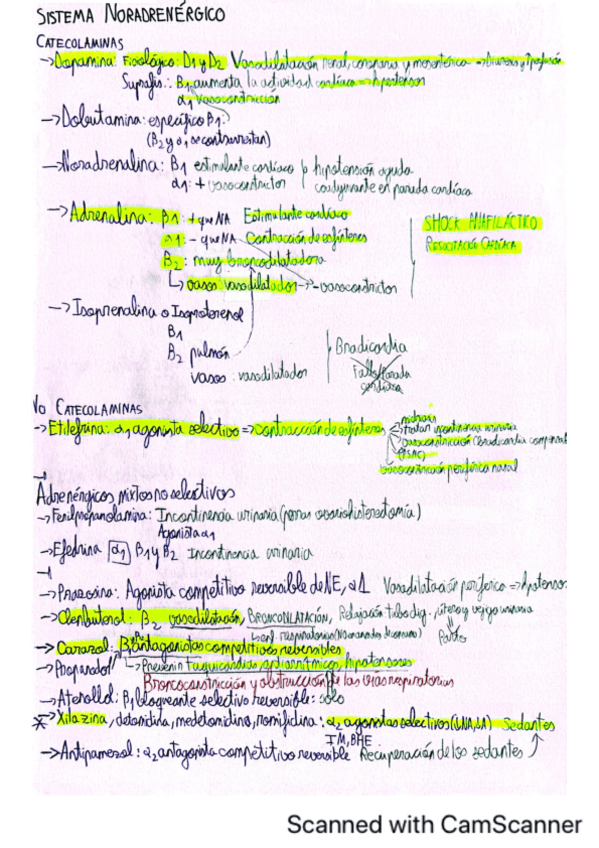 SISTEMA NORADRENÉRGICO
CATECOLAMINAS
→Dopamina: Fisiológico: D1 y D2 Vasodilatación renal, coronaria y mesentérica → Diuresis y Tperfusión
Suprafis.: B1 aumenta la actividad cardíaca → hipotensos
α1 Vasoconstricción
→Dobutamina: específico B1:
(B2 y α1 se contrarrestan)
→Noradrenalina: B1 estimulante cardíaco hipotensión aguda
α1: + vasoconstrictor coadyuvante en parada cardíaca
→Adrenalina: B1: + que NA Estimulante cardíaco
α1: - que NA Contracción de esfínteres
SHOCK ANAFILÁCTICO
RESUCITACIÓN CARDÍACA
B2: muy broncodilatadora
↳ vasos: vasodilatador → -vasoconstrictor
→Isoprenalina o Isoproterenol
B1
B2 pulmón
vasos: vasodilatador
Bradicardia
Fallo/Parada
cardíaca
NO CATECOLAMINAS
→Etilefrina: α1 agonista selectivo ⇒ contracción de esfínteres
tratar incontinencia urinaria
vasoconstricción periférica nasal
Adrenérgicos mixtos no selectivos
→Fenilpropanolamina: Incontinencia urinaria (perras ovariohisterectomía)
Agonista α1
→Efedrina α1 B1 y B2 Incontinencia urinaria
→Prazosina: Agonista competitivo reversible de NE, α1 Vasodilatación periférica ⇒ hipotensor
→Clenbuterol: B2 vasodilatación, BRONCODILATACIÓN, Relajación tubo dig., útero y vejiga urinaria
enf. respiratorias (No animales de consumo) Parto
→Carazol: B antagonistas competitivos reversibles
→Propanolol ↳ Prevenir taquicardias, antiarrítmicos, hipotensores
Broncoconstricción y obstrucción de las vías respiratorias
→Atenolol: B1 bloqueante selectivo reversible: sólo
* →Xilazina, detomidina, medetomidina, romifidina: α2 agonistas selectivos (NA, A) Sedantes
IM, BHE
→Antipamezol: α2 antagonista competitivo reversible Recuperación de los sedantes
Scanned with CamScanner